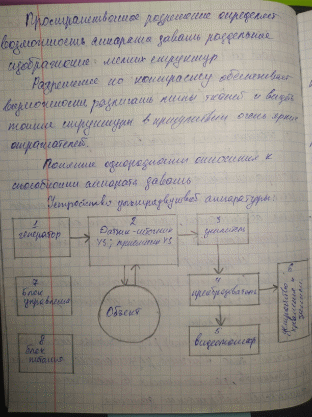 Пространственное разрешение определяет
возможность аппарата давать раздельное
изображение мелких структур
Разрешение по контрасту обеспечивает
возможность различать типы тканей и видеть
тонкие структуры в присутствии очень ярких
отражателей.
Понятие однородности относится к
способности аппарата давать
Устройство ультразвуковой аппаратуры:
1
генератор
2
Датчик-источник
УЗ; приемник УЗ
3
усилитель
7
блок
управления
Объект
4
преобразователь
Устройство
5
видеомонитор
8
блок
питания